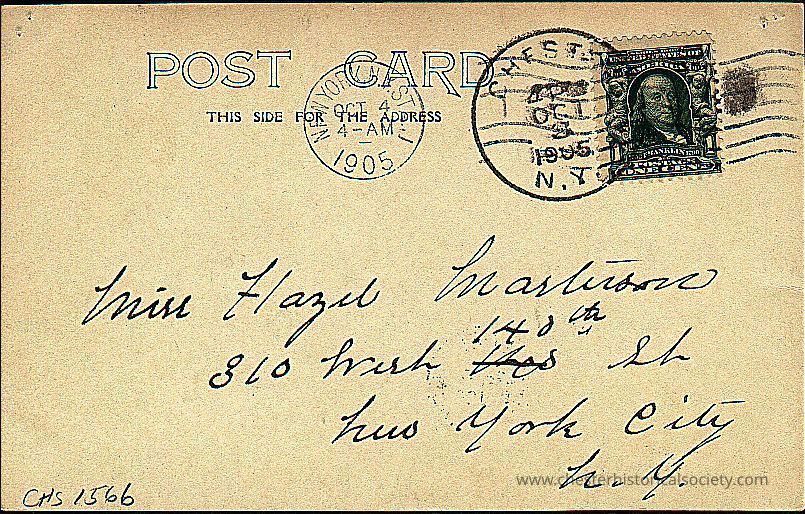 POST CARD
THIS SIDE FOR THE ADDRESS
NEW YORK, N.Y. STA.
OCT 4
4-AM
1905
CHESTER
OCT
3
1905
N.Y.
FRANKLIN
ONE CENT
Miss Hazel Masterson
140th
310 West St
New York City
N.Y.
CHS 1566
www.chesterhistoricalsociety.com